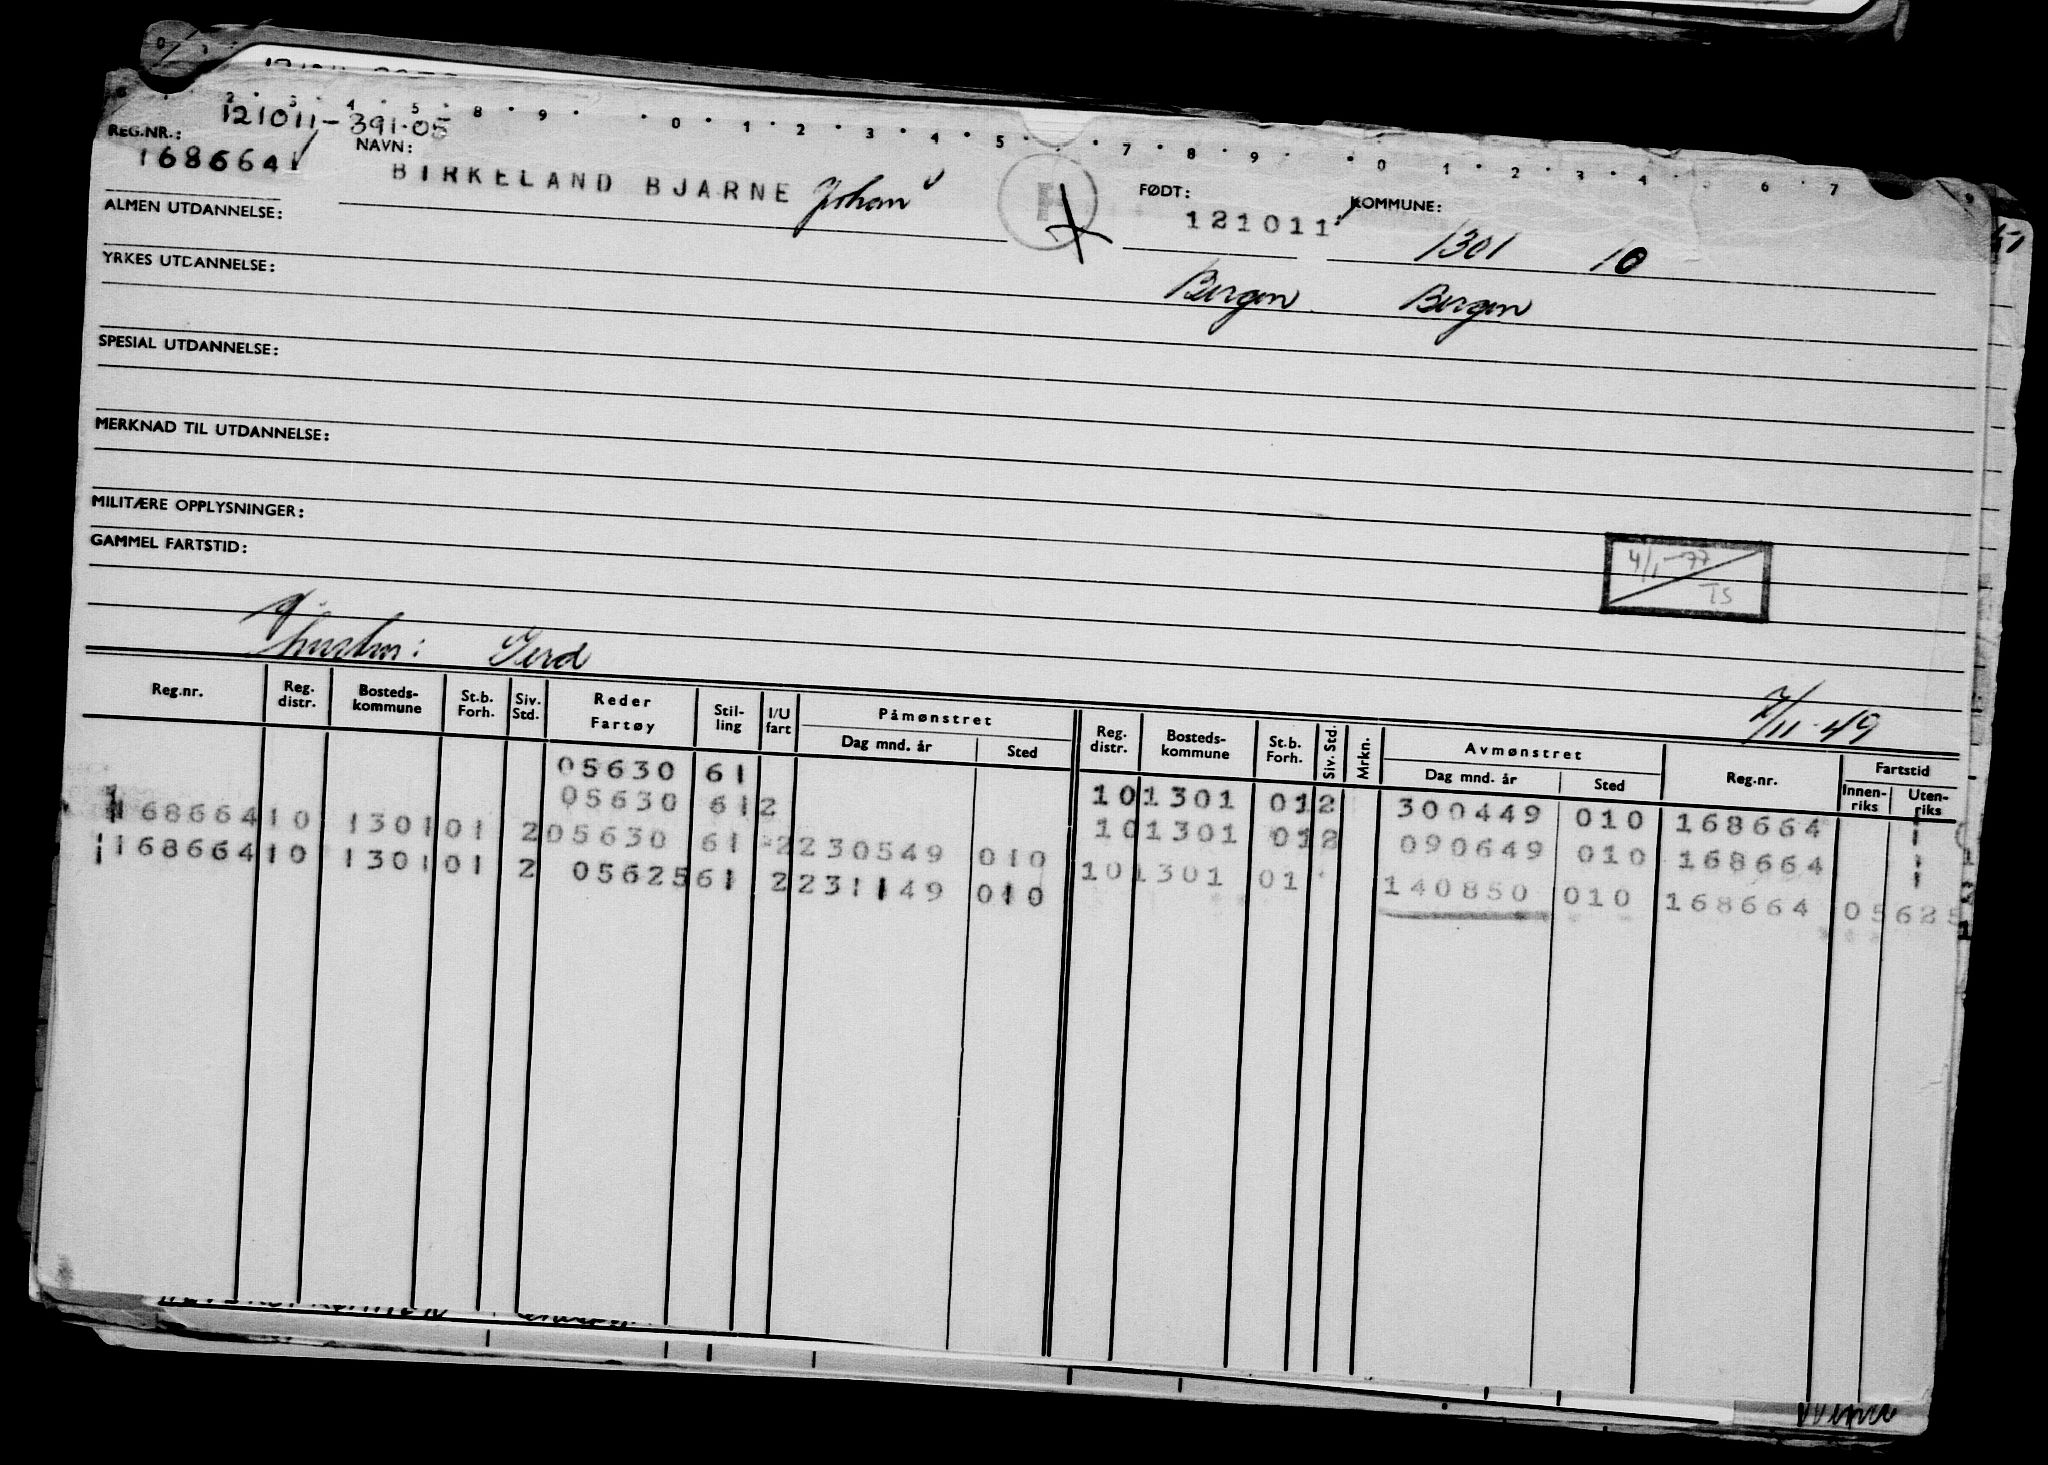 121011-391.05
REG.NR.: 168664 NAVN: BIRKELAND BJARNE Johan FØDT: 121011 KOMMUNE: 1301 10
ALMEN UTDANNELSE:
Bergen Bergen
YRKES UTDANNELSE:
SPESIAL UTDANNELSE:
MERKNAD TIL UTDANNELSE:
MILITÆRE OPPLYSNINGER:
GAMMEL FARTSTID:
4/1-77
TS
hustru: Gerd
7/11-49
Reg.nr. Reg. distr. Bosteds-kommune St.b. Forh. Siv. Std. Reder Fartøy Stil-ling I/U fart Påmønstret Dag mnd. år Sted Reg. distr. Bosteds-kommune St.b. Forh. Siv. Std. Mrkn. Avmønstret Dag mnd. år Sted Reg.nr. Fartstid Innen-riks Uten-riks
05630 61 10 1301 01 2 300449 010 168664
05630 61 2 10 1301 01 2 090649 010 168664
168664 10 1301 01 2 05630 61 2 230549 010 10 1301 01 140850 010 168664 05625
168664 10 1301 01 2 05625 61 2 231149 010